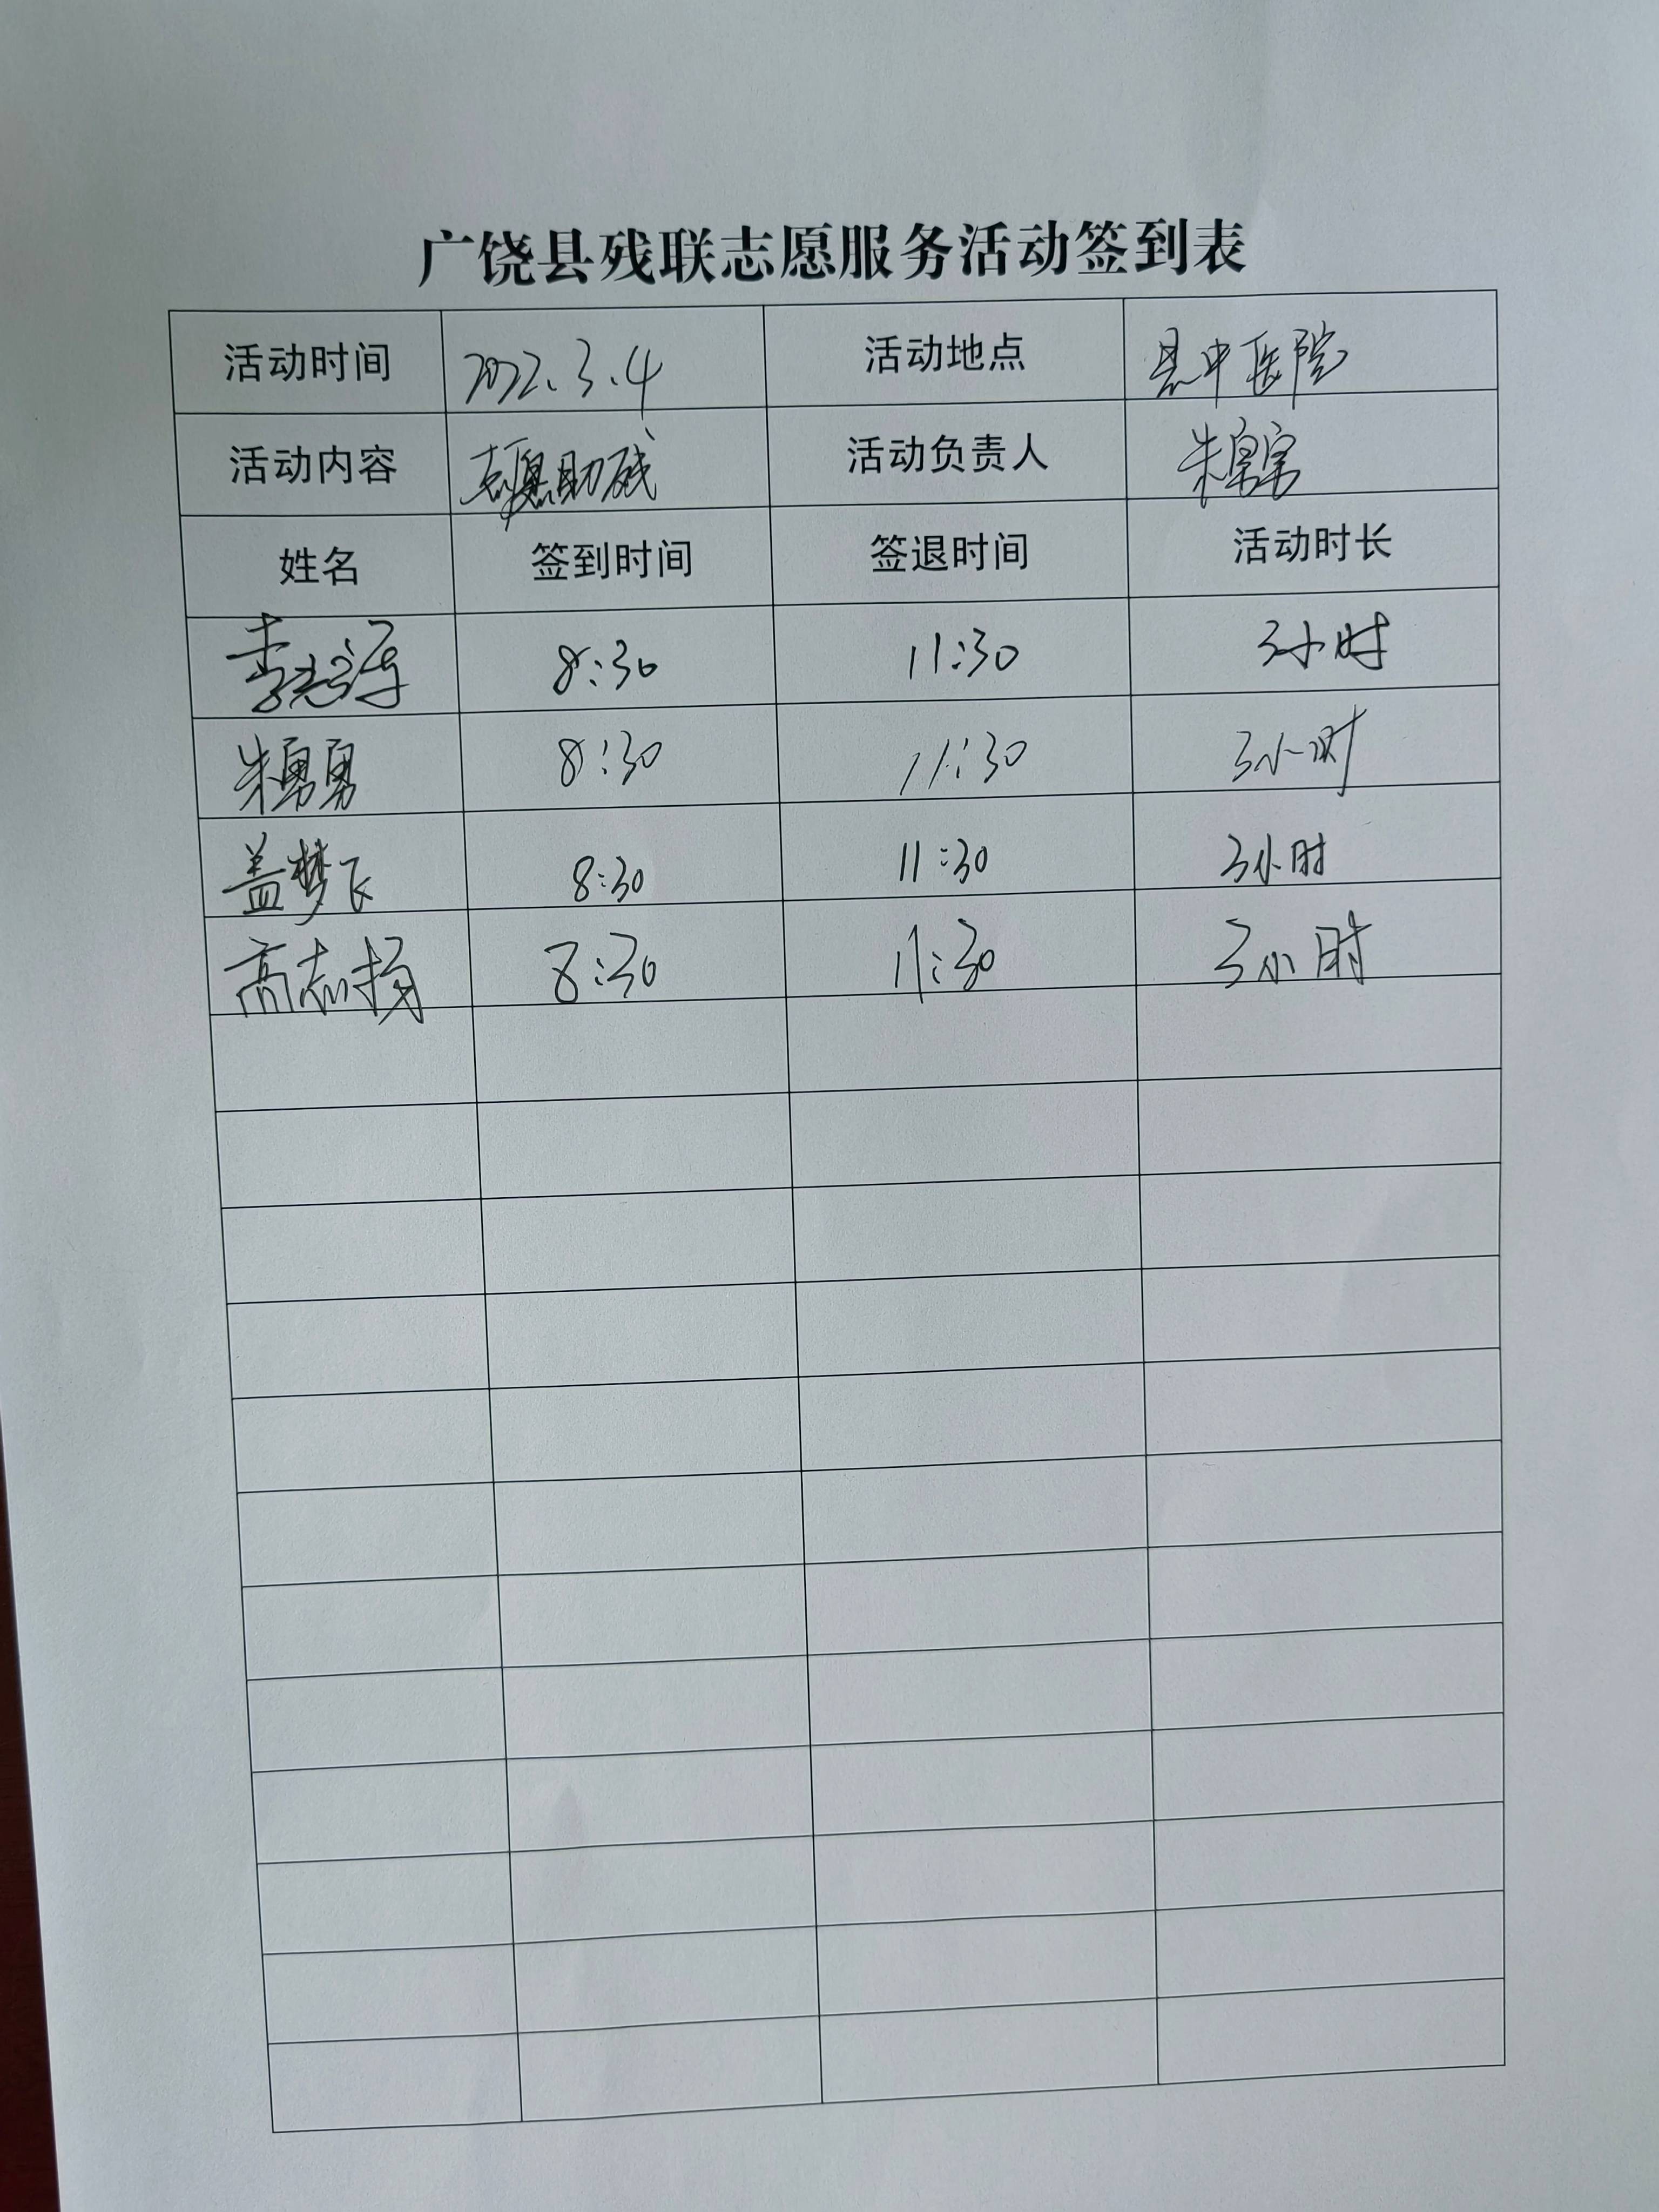 广饶县残联志愿服务活动签到表
活动时间 2022.3.4 活动地点 县中医院
活动内容 志愿助残 活动负责人 朱
姓名 签到时间 签退时间 活动时长
李 8:30 11:30 3小时
朱勇勇 8:30 11:30 3小时
盖梦飞 8:30 11:30 3小时
高志扬 8:30 11:30 3小时